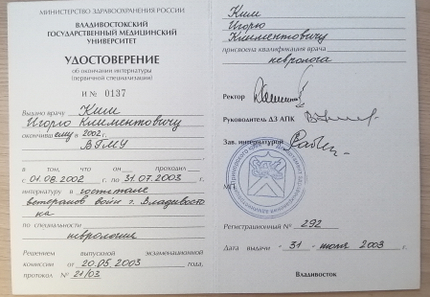 МИНИСТЕРСТВО ЗДРАВООХРАНЕНИЯ РОССИИ
ВЛАДИВОСТОКСКИЙ
ГОСУДАРСТВЕННЫЙ МЕДИЦИНСКИЙ
УНИВЕРСИТЕТ
УДОСТОВЕРЕНИЕ
об окончании интернатуры
(первичной специализации)
И № 0137
Выдано врачу Ким
Игорю Климентовичу
окончивш ему в 2002 г.
ВГМУ
в том, что он проходил
с 01.08.2002 г. по 31.07.2003 г.
интернатуру в госпитале
ветеранов войн г. Владивосто
ка
по специальности
неврология
Решением выпускной экзаменационной
комиссии от 20.05.2003 года,
протокол № 21/03
Ким
Игорю
Климентовичу
присвоена квалификация врача
невролога
Ректор
Руководитель ДЗ АПК
Зав. интернатурой
МП
Регистрационный № 292
Дата выдачи - 31 - июля 2003 г.
Владивосток